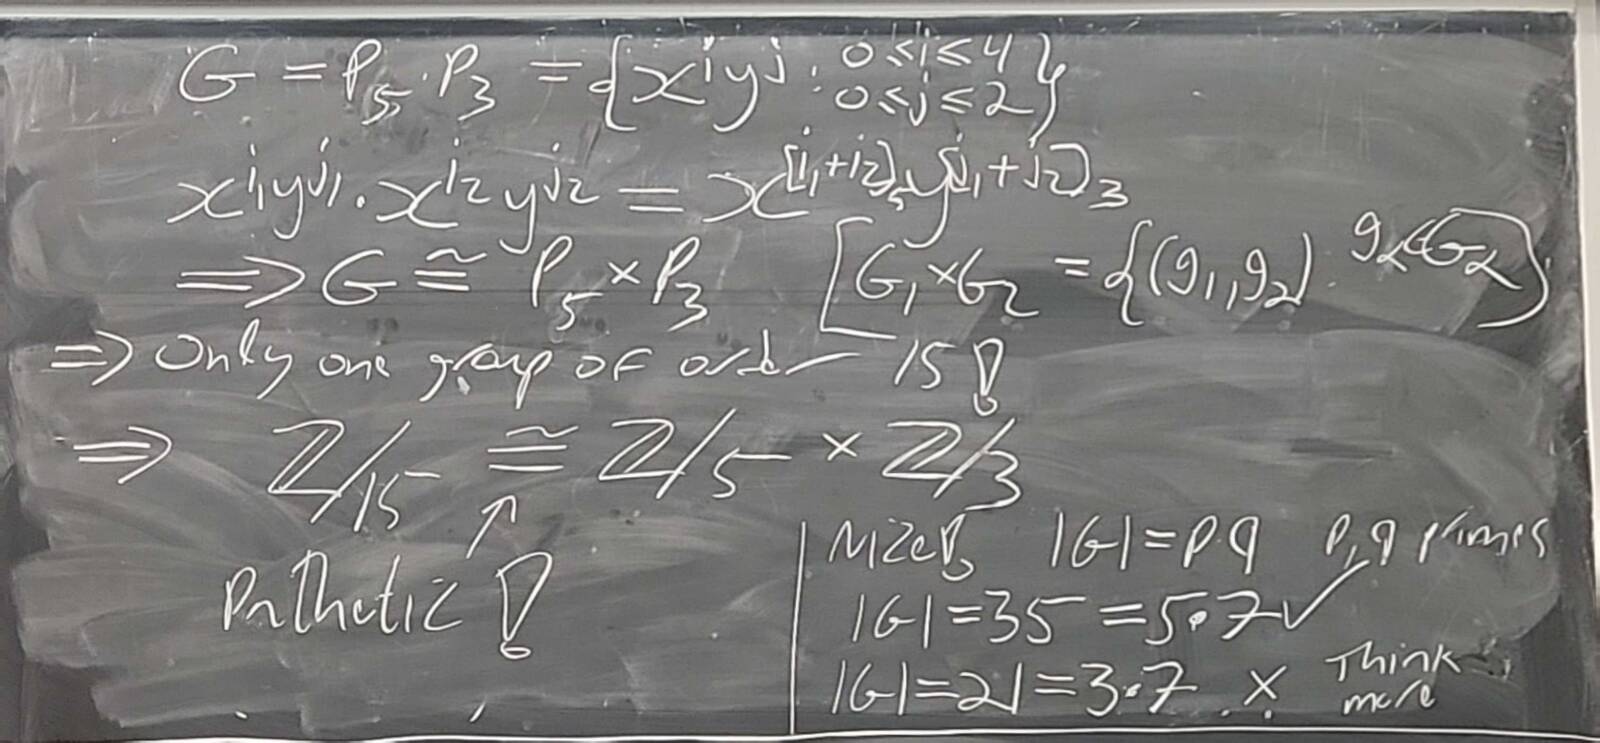 G = P₅·P₃ = {xⁱyʲ : 0≤i≤4, 0≤j≤2}
x^{i₁}y^{j₁}·x^{i₂}y^{j₂} = x^{[i₁+i₂]₅}y^{[j₁+j₂]₃}
⟹ G ≅ P₅×P₃ [G₁×G₂ = {(g₁,g₂) : g_α∈G_α}
⟹ only one group of order 15!
⟹ ℤ/15 ≅ ℤ/5 × ℤ/3
↑
Pathetic!
|G|=pq p,q primes
|G|=35=5·7 ✓
|G|=21=3·7 × Think more